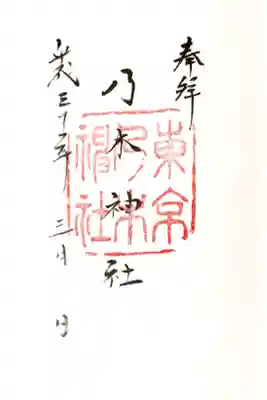 奉拝
乃木神社
東京
乃木
神社
平成三十一年三月 日